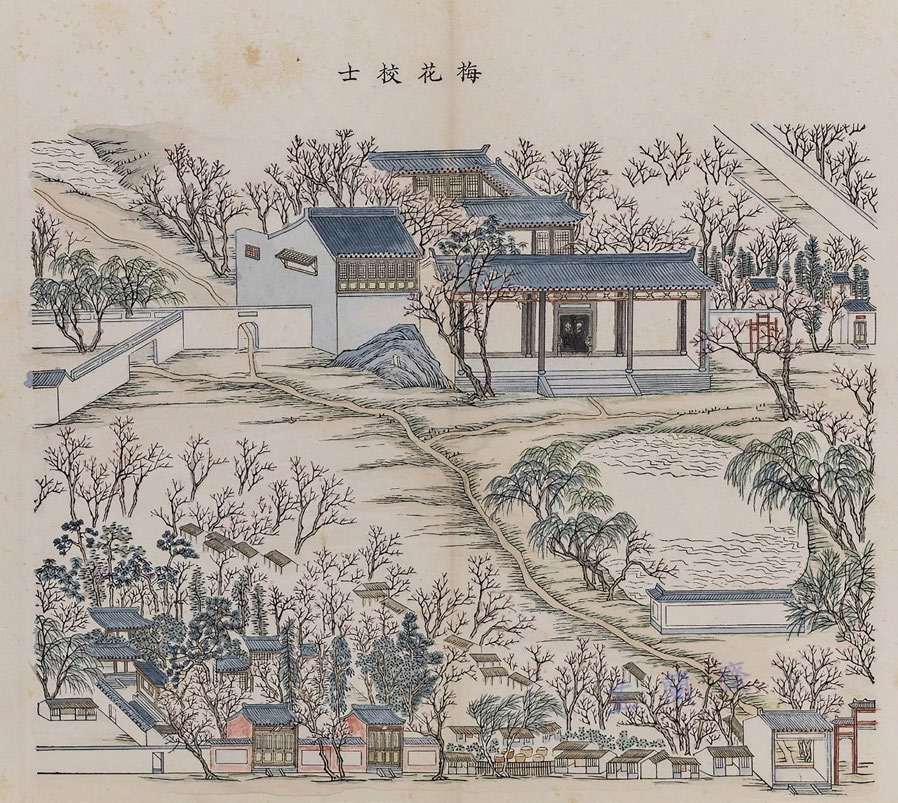 梅花校士